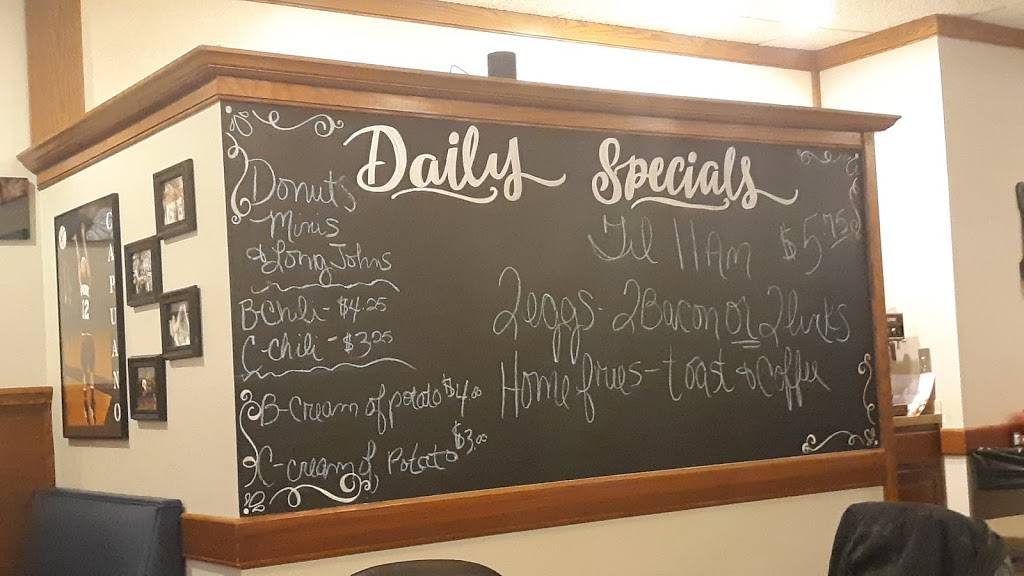 Daily Specials
Donuts
Minis
& Long Johns
B-Chili - $4.25
C-chili - $3.25
B-Cream of potato $4.00
C-cream of Potato $3.00
Til 11 Am $5.75
2 eggs - 2 Bacon or 2 links
Home fries - toast & Coffee
CARUANO